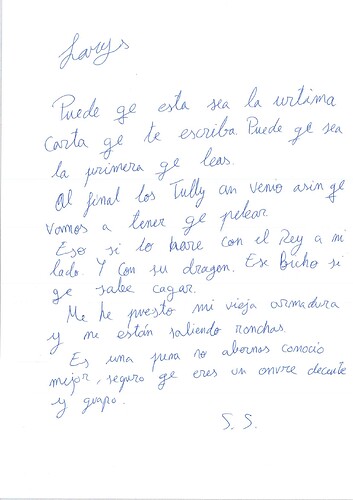 Larys
Puede qe esta sea la urtima
carta qe te escriba. Puede qe sea
la primera qe leas.
Al final los Tully an venio asin qe
vamos a tener qe pelear.
Eso si lo hare con el Rey a mi
lado. Y con su dragon. Ese Bicho si
qe sabe cagar.
Me he puesto mi vieja armadura
y me están saliendo ronchas.
Es una pena no abernos conocio
mejor, seguro qe eres un onvre decente
y guapo.
S. S.